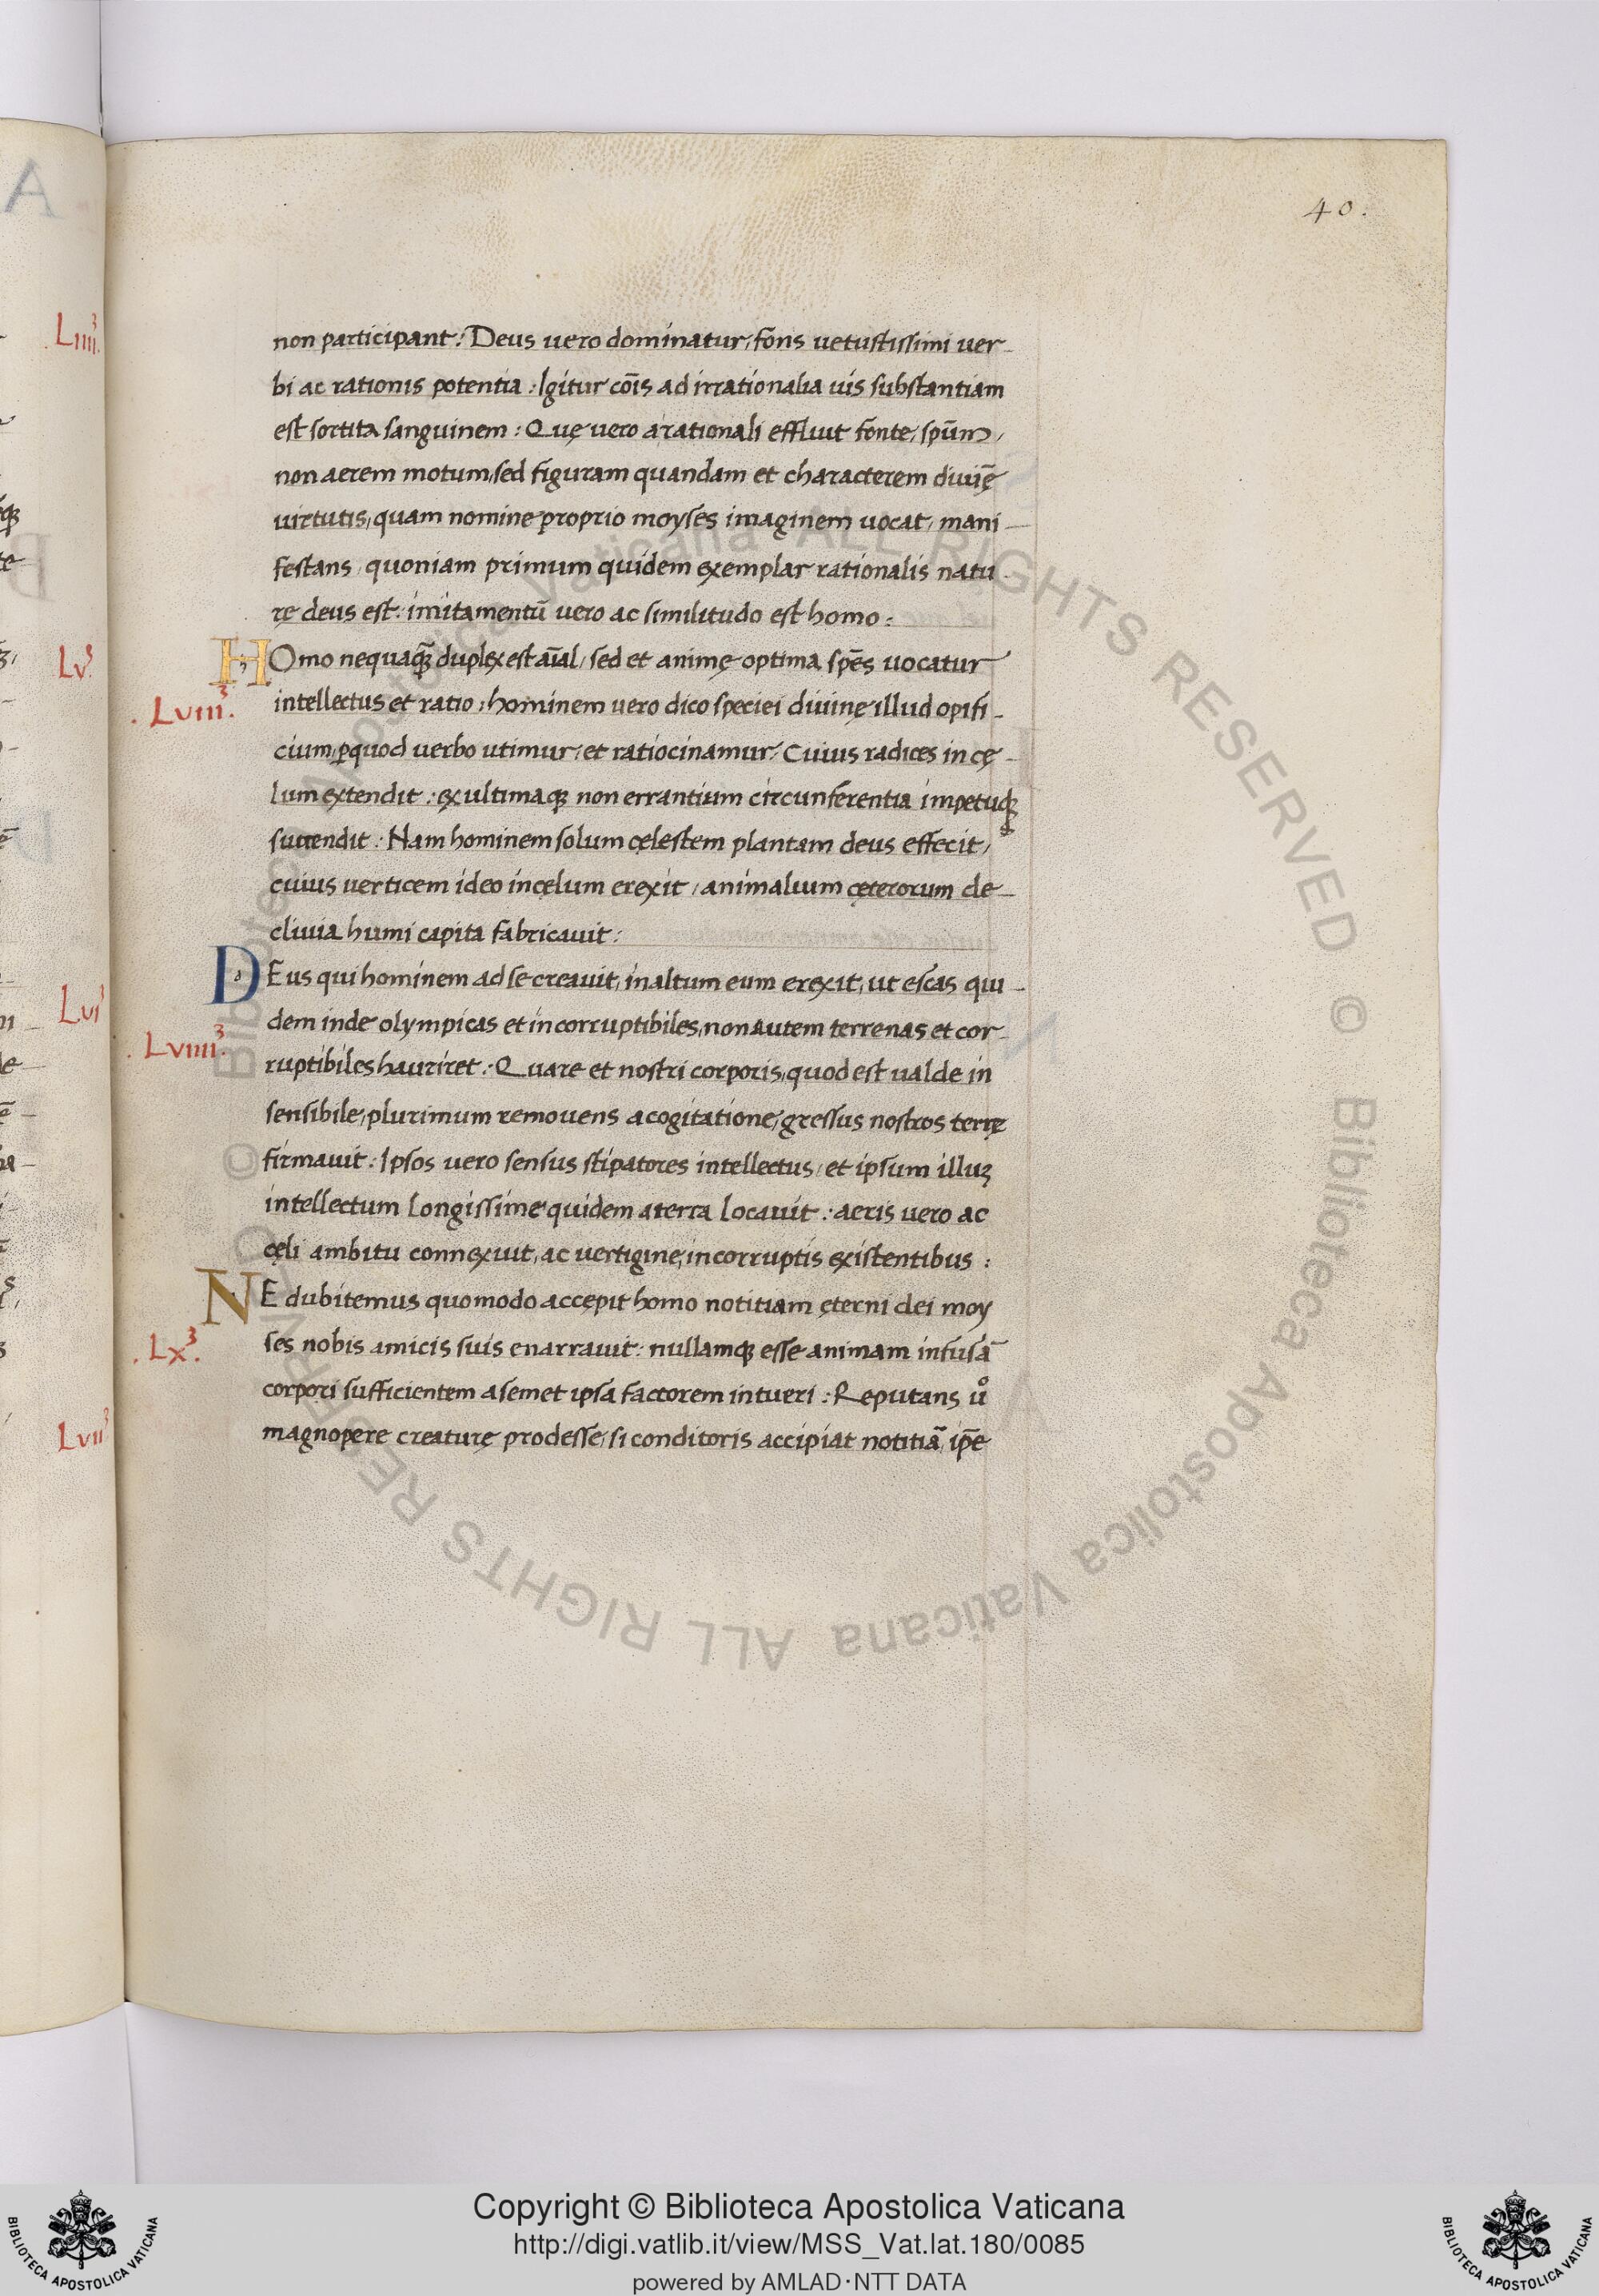 40.
non participant: Deus uero dominatur, fons uetustissimi uer-
bi ac rationis potentia: Igitur cōīs ad irrationalia uis substantiam
est sortita sanguinem: Quę uero a rationali effluit fonte, spūm,
non aerem motum, sed figuram quandam et characterem diuiē
uirtutis, quam nomine proprio moyses imaginem uocat, mani-
festans, quoniam primum quidem exemplar rationalis natu-
rę deus est: imitamentū uero ac similitudo est homo:
HOmo nequaꝗ̃ duplex est aīal, sed et animę optima spēs uocatur
.Lviii³.
intellectus et ratio: hominem uero dico speciei diuinę illud opifi-
cium, ꝑquod uerbo utimur, et ratiocinamur, Cuius radices in cę-
lum extendit: ex ultimaqꝫ non errantium circunferentia impetuqꝫ
suttendit: Nam hominem solum cęlestem plantam deus effecit,
cuius uerticem ideo in cęlum erexit, animalium cęterorum de-
cliuia humi capita fabricauit:
DEus qui hominem ad se creauit, in altum eum erexit, ut escas qui-
dem inde olympicas et incorruptibiles, non autem terrenas et cor-
.Lviiii³.
ruptibiles hauriret: Quare et nostri corporis, quod est ualde in
sensibile, plurimum remouens a cogitatione, gressus nostros terrę
firmauit: Ipsos uero sensus stipatores intellectus, et ipsum illuꝫ
intellectum longissime quidem a terra locauit: aeris uero ac
cęli ambitu connexuit, ac uertigine, incorruptis existentibus:
NE dubitemus quomodo accepit homo notitiam ęterni dei moy
.Lx³.
ses nobis amicis suis enarrauit: nullamqꝫ esse animam infusā
corpori sufficientem a semet ipsa factorem intueri: Reputans ůo
magnopere creaturę prodesse, si conditoris accipiat notitiā, ip̄e
Liiii³.
Lv³.
Lvi³
Lvii³
Copyright © Biblioteca Apostolica Vaticana
http://digi.vatlib.it/view/MSS_Vat.lat.180/0085
powered by AMLAD·NTT DATA
BIBLIOTECA APOSTOLICA VATICANA
BIBLIOTECA APOSTOLICA VATICANA
© Biblioteca Apostolica Vaticana ALL RIGHTS RESERVED © Biblioteca Apostolica Vaticana ALL RIGHTS RESERVED